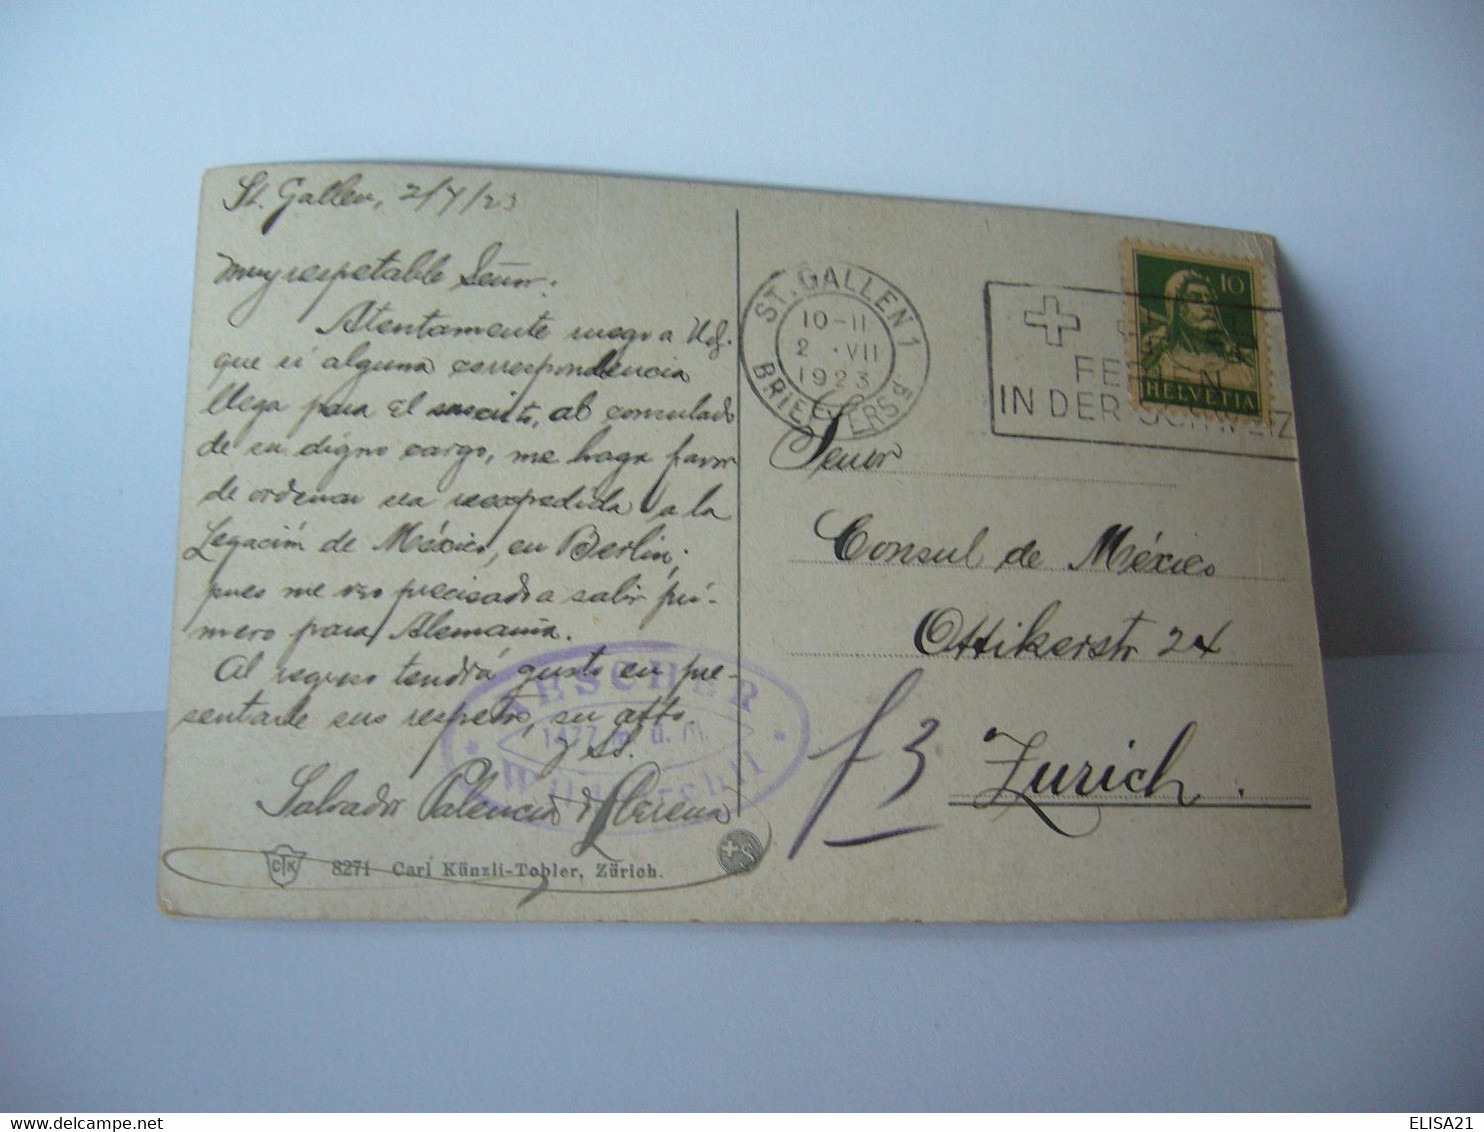 St. Gallen, 2/7/23
Muy respetable Señor:
Atentamente ruego a Ud.
que si alguna correspondencia
llega para el suscrito, al consulado
de su digno cargo, me haga favor
de ordenar sea reexpedida a la
Legación de México, en Berlin;
pues me veo precisado a salir pri-
mero para Alemania.
Al regreso tendrá gusto en pre-
sentarle sus respetos, su atto.
y SS.
Salvador Palencia
AESCHER
1477 m. ü. M.
8271 Carl Künzli-Tobler, Zürich.
CTK
+S
ST. GALLEN 1
10-II
2.VII
1923
BRIEFVERS
10
HELVETIA
FERIEN
IN DER SCHWEIZ
Señor
Consul de México
Ottikerstr 24
Zurich.
f 3
ELISA21